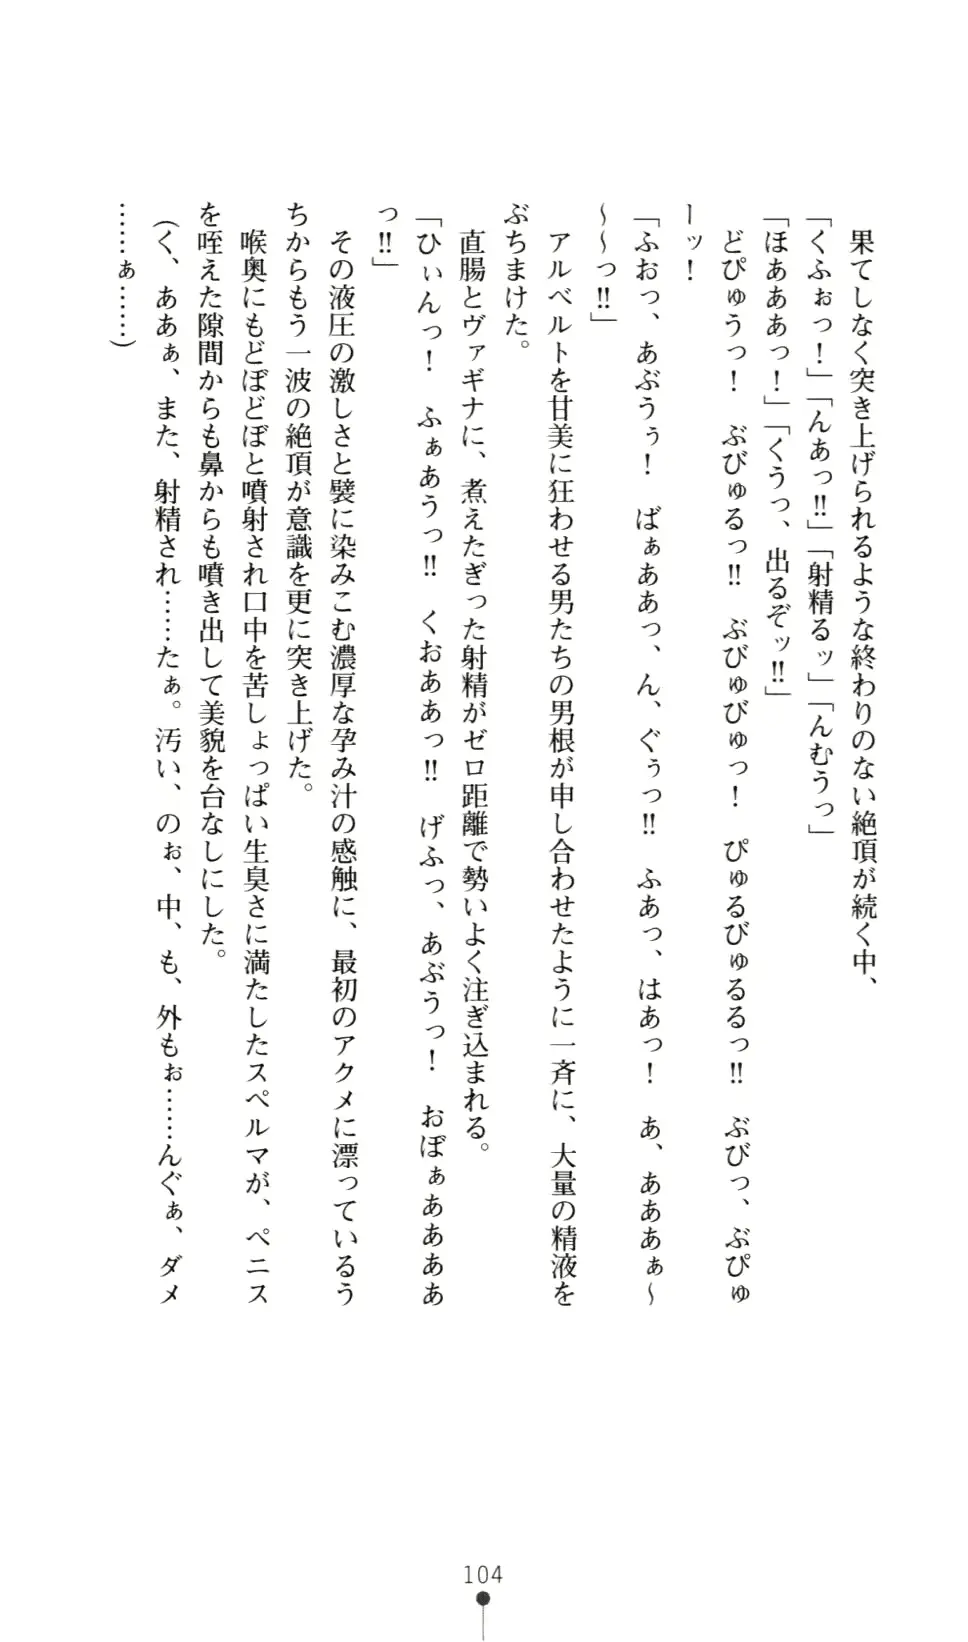 果てしなく突き上げられるような終わりのない絶頂が続く中、
「くふぉっ！」「んあっ!!」「射精るッ」「んむうっ」
「ほあああっ！」「くうっ、出るぞッ!!」
どぴゅうっ！　ぶびゅるっ!!　ぶびゅびゅっ！　ぴゅるびゅるるっ!!　ぶびっ、ぶぴゅ
ーッ！
「ふおっ、あぶうぅ！　ばぁああっ、ん、ぐぅっ!!　ふあっ、はあっ！　あ、あああぁ〜
〜〜っ!!」
アルベルトを甘美に狂わせる男たちの男根が申し合わせたように一斉に、大量の精液を
ぶちまけた。
直腸とヴァギナに、煮えたぎった射精がゼロ距離で勢いよく注ぎ込まれる。
「ひぃんっ！　ふぁあうっ!!　くおああっ!!　げふっ、あぶうっ！　おぼぁああああ
っ!!」
その液圧の激しさと襞に染みこむ濃厚な孕み汁の感触に、最初のアクメに漂っているう
ちからもう一波の絶頂が意識を更に突き上げた。
喉奥にもどぼどぼと噴射され口中を苦しょっぱい生臭さに満たしたスペルマが、ペニス
を咥えた隙間からも鼻からも噴き出して美貌を台なしにした。
（く、ああぁ、また、射精され……たぁ。汚い、のぉ、中、も、外もぉ……んぐぁ、ダメ
……ぁ……）
104